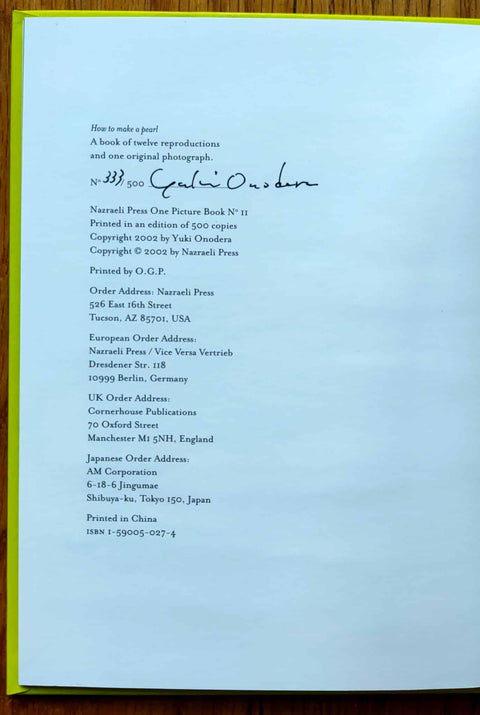 How to make a pearl
A book of twelve reproductions
and one original photograph.
Nº 333/500 Yuki Onodera
Nazraeli Press One Picture Book Nº 11
Printed in an edition of 500 copies
Copyright 2002 by Yuki Onodera
Copyright © 2002 by Nazraeli Press
Printed by O.G.P.
Order Address: Nazraeli Press
526 East 16th Street
Tucson, AZ 85701, USA
European Order Address:
Nazraeli Press / Vice Versa Vertrieb
Dresdener Str. 118
10999 Berlin, Germany
UK Order Address:
Cornerhouse Publications
70 Oxford Street
Manchester M1 5NH, England
Japanese Order Address:
AM Corporation
6-18-6 Jingumae
Shibuya-ku, Tokyo 150, Japan
Printed in China
ISBN 1-59005-027-4